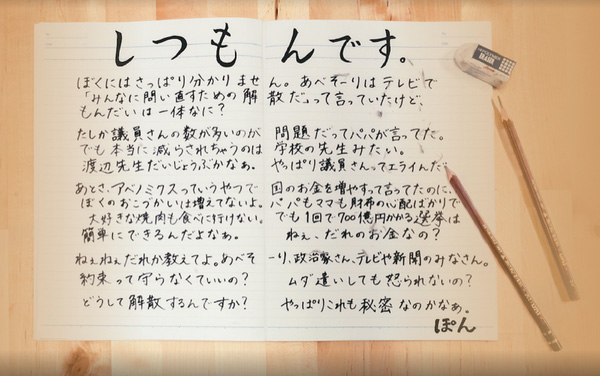 しつもんです。
ぼくにはさっぱり分かりません。あべそーりはテレビで
「みんなに問い直すための解散だ」って言っていたけど、
もんだいは一体なに?
たしか議員さんの数が多いのが問題だってパパが言ってた。
でも本当に減らされちゃうのは学校の先生みたい。
渡辺先生だいじょうぶかなぁ。やっぱり議員さんってエライんだ
あとさ、アベノミクスっていうやつで国のお金を増やすって言ってたのに、
ぼくのおこづかいは増えてないよ。パパもママも財布の心配ばかりで
大好きな焼肉も食べに行けない。でも1回で700億円かかる選挙は
簡単にできるんだよなぁ。ねぇ、だれのお金なの?
ねぇねぇだれか教えてよ。あべそーり、政治家さん、テレビや新聞のみなさん。
約束って守らなくていいの? ムダ遣いしても怒られないの?
どうして解散するんですか? やっぱりこれも秘密なのかなぁ。
ぽん